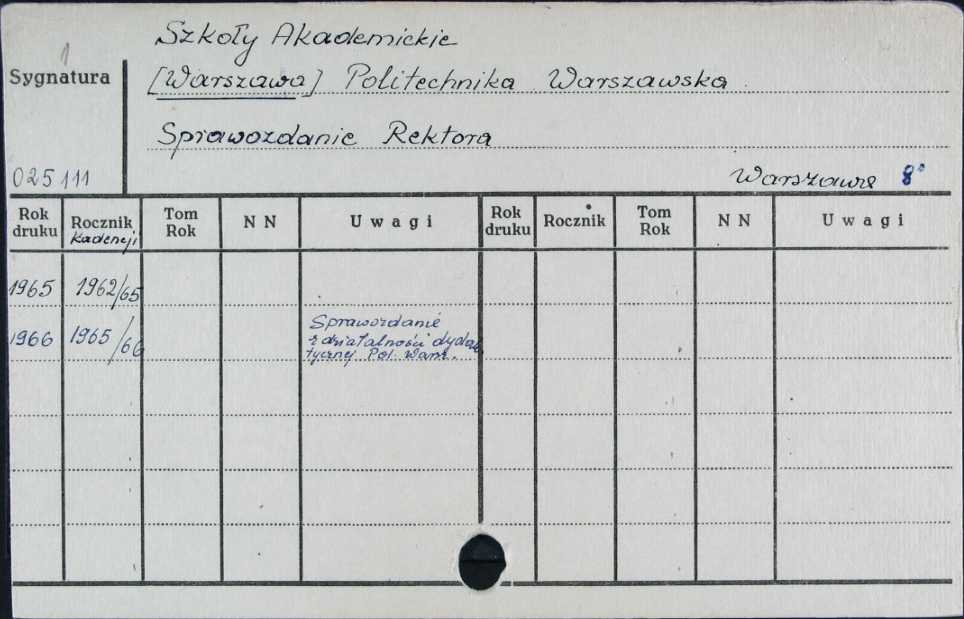 Szkoły Akademickie
1
Sygnatura
[Warszawa] Politechnika Warszawska
Sprawozdanie Rektora
025111
Warszawa 8°
Rok druku Rocznik kadencji Tom Rok N N Uwagi Rok druku Rocznik Tom Rok N N Uwagi
1965 1962/65
1966 1965/66 Sprawozdanie
z działalności dydak
tycznej Pol. Warsz.